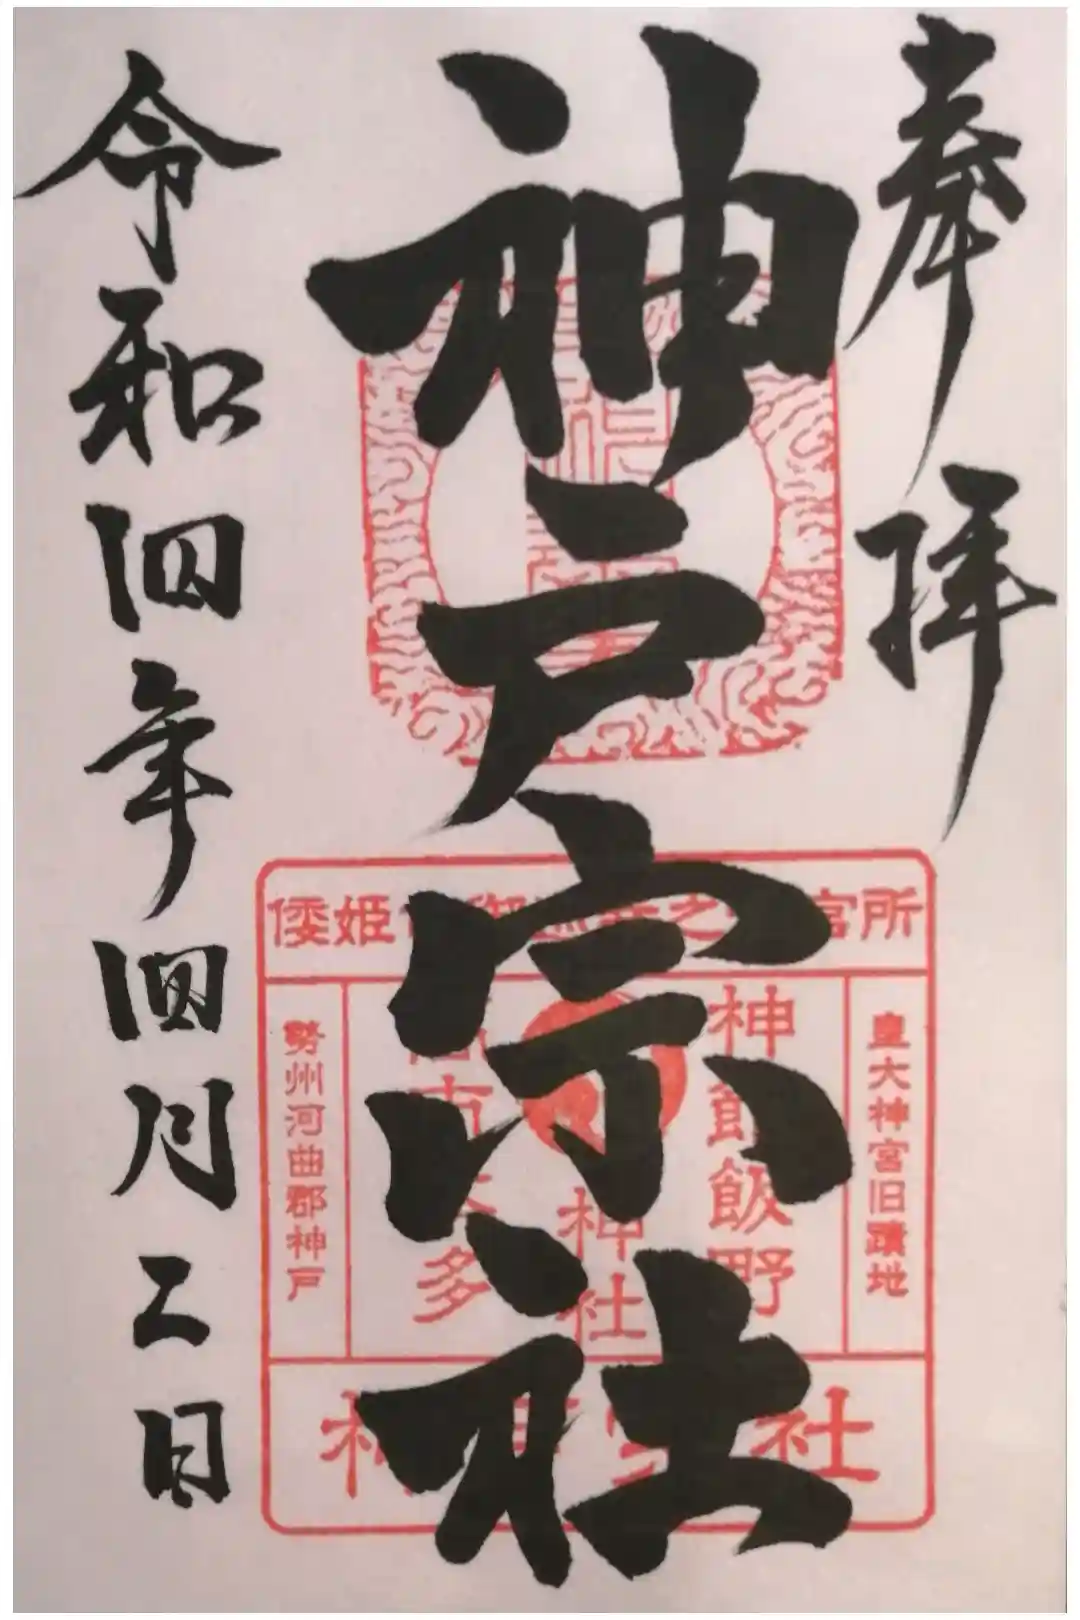 奉拝
神戸宗社
令和四年四月二日
倭姫
之
宮所
皇大神宮旧蹟地
神館飯野
神社
市
多
勢州河曲郡神戸
社